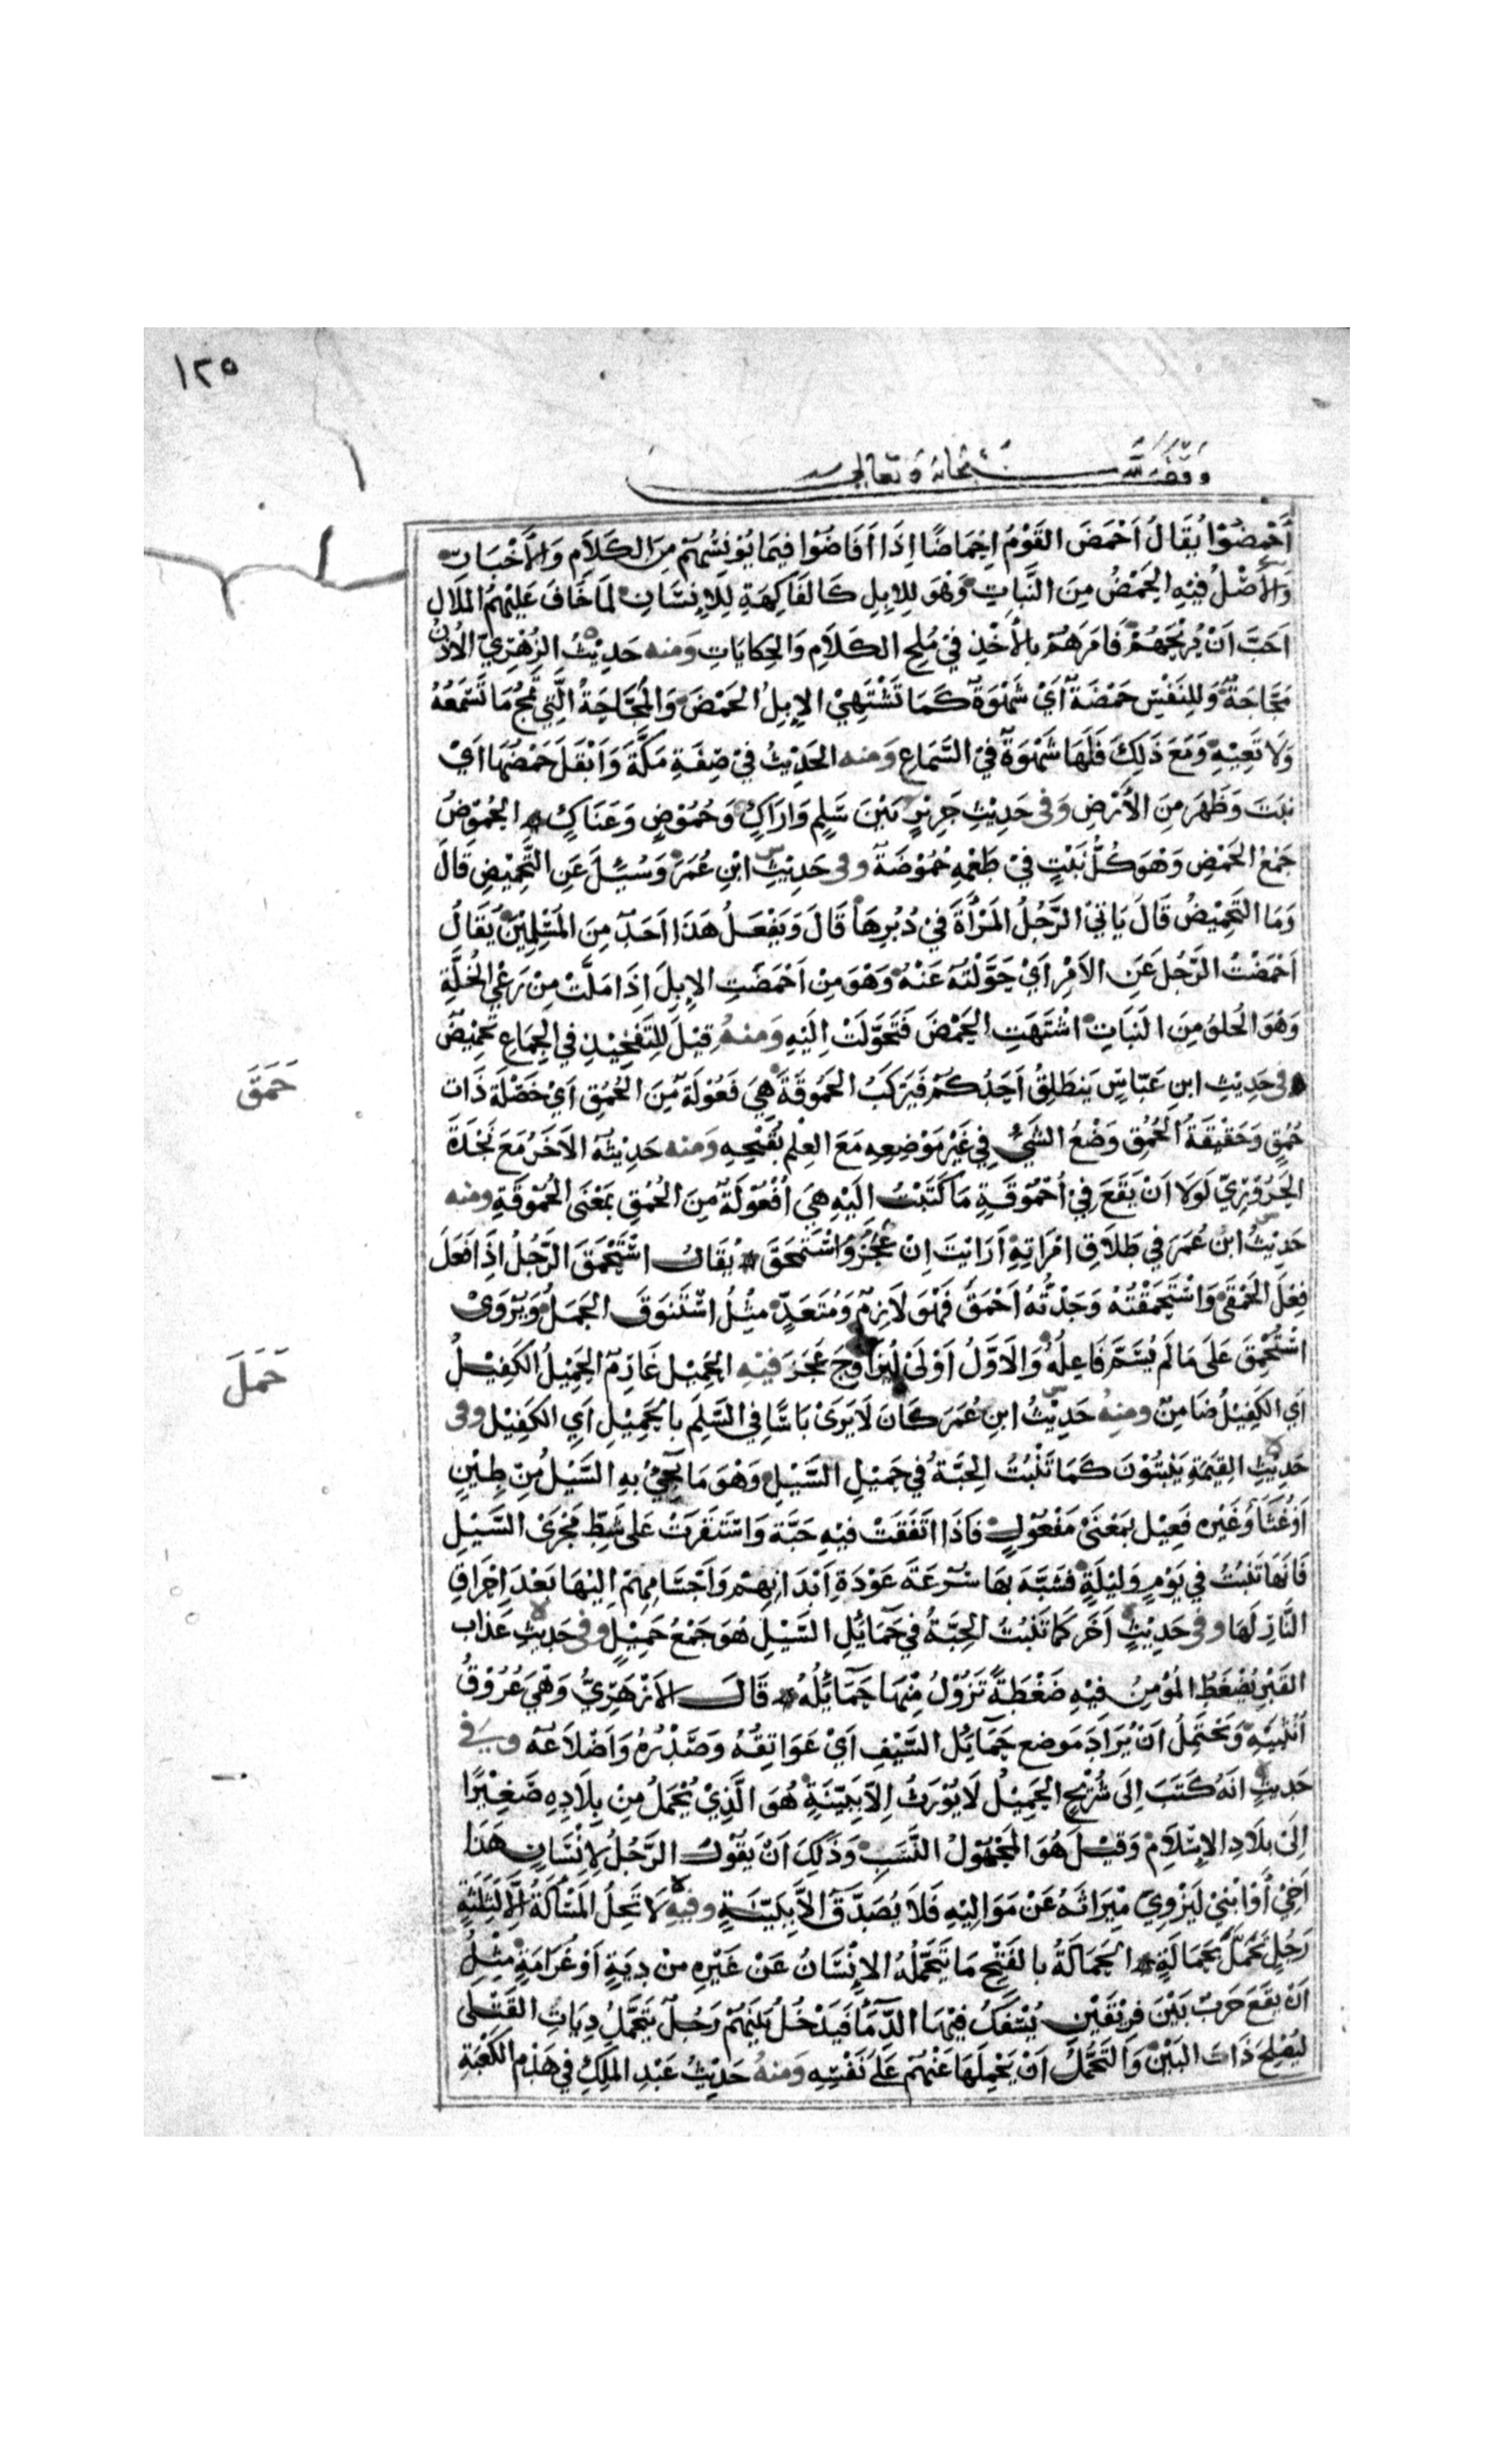 ١٢٥
وقف لله سبحانه وتعالى
أَحْمِضُوْا يُقَالُ أَحْمَضَ القَوْمُ اِحْمَاضًا اِذَا اَفَاضُوْا فِيمَا يُوْنِسُهُمْ مِنَ الكَلَامِ وَالأَخْبَارِ
وَالأَصْلُ فِيْهِ الحَمْضُ مِنَ النَّبَاتِ وَهْوَ لِلاِبِلِ كَالفَاكِهَةِ لِلْاِنسَانِ لَمَا خَافَ عَلَيْهِمُ المَلَالَ
اَحَبَّ اَنْ يُرِيْحَهُمْ فَامَرَهُمْ بِالأَخْذِ فِيْ مُلَحِ الكَلَامِ وَالحِكَايَاتِ وَمنه حَدِيْثُ الزُهْرِيّ الأُذُنُ
مَجَّاجَةٌ وَلِلنَفْسِ حَمْضَةٌ أَيْ شَهْوَةٌ كَمَا تَشْتَهِيْ الاِبِلُ الحَمْضَ وَالمَجَّاجَةُ الَّتِي تَمُجُّ مَا تَسْمَعُهُ
وَلَا تَعِيْهِ وَمَعَ ذَلِكَ فَلَهَا شَهْوَةٌ فِيْ السَّمَاعِ وَمنه الحَدِيْثُ فِيْ صِفَةِ مَكَّةَ وَاَبْقَلَ حَمْضُهَا اَيْ
نبَتَ وَظَهَرَ مِنَ الأَرْضِ وَفى حَدِيْثِ جَرِيْرٍ بَيْنَ سَلَمٍ وَارَاكٍ وَحُمُوْضٍ وَعَنَاكٍ الحُمُوْضُ
جَمْعُ الحَمْضِ وَهْوَ كُلُّ نَبْتٍ فِيْ طَعْمِهِ حُمُوْضَةٌ وفى حَدِيْثِ ابْنِ عُمَرَ وَسُئِلَ عَنِ التَّحْمِيْضِ قَالَ
وَمَا التَحْمِيْضُ قَالَ يَاتِيْ الرَّجُلُ المَرْأَةَ فِيْ دُبُرِهَا قَالَ وَيَفْعَلُ هَذَا اَحَدٌ مِنَ المُسْلِمِيْنَ يُقَالُ
اَحْمَضْتُ الرَّجُلَ عَنِ الاَمْرِ اَيْ حَوَّلْتُهُ عَنْهُ وَهْوَ مِنْ اَحْمَضَتِ الاِبِلُ اِذَا مَلَّتْ مِنْ رَعْيِ الخُلَّةِ
وَهْوَ الحُلوُ مِنَ النَبَاتِ اشْتَهَتِ الحَمْضَ فَتَحَوَّلَتْ اِلَيْهِ وَمنهُ قِيْلَ لِلتَفْخِيْذِ فِي الجِمَاعِ تَحْمِيْضٌ
حَمَقَ
فى حَدِيْثِ ابنِ عَبَّاسٍ يَنطَلِقُ اَحَدُكُمْ فَيَرْكَبُ الحَمُوقَةَ هِيَ فَعُوْلَةٌ مِنَ الحُمْقِ اَيْ خَصْلَةً ذَاتَ
حُمْقٍ وَحَقِيْقَةُ الحُمْقِ وَضْعُ الشَيْءِ فِي غَيْرِ مَوْضِعِهِ مَعَ العِلْمِ بِقُبْحِهِ وَمنه حَدِيْثُهُ الاَخَرُ مَعَ نَجْدَةَ
الحَرُوْرِيّ لَوْلَا اَنْ يَقَعَ فِيْ أُحْمُوْقَةٍ مَا كَتَبْتُ اِلَيْهِ هِيَ أُفْعُوْلَةٌ مِنَ الحُمْقِ بمَعْنَى الحُمُوقَةِ ومنه
حَدِيْثُ ابْنِ عُمَرَ في طَلَاقِ امْرَاتِهِ اَرَايْتَ اِنْ عَجَزَ وَاسْتَحْمَقَ يُقَالُ اسْتَحْمَقَ الرَّجُلُ اِذَا فَعَلَ
فِعْلَ الحَمْقَى وَاسْتَحْمَقْتُهُ وَجَدْتُهُ اَحْمَقَ فَهْوَ لَازِمٌ وَمُتَعَدٍّ مِثْلُ اسْتَنْوَقَ الجَمَلُ وَيُرْوَىْ
حَمَلَ
اسْتُحْمِقَ عَلَى مَا لَم يُسَمَّ فَاعِلُهُ وَالاَوَّلُ اَوْلَىْ لِيُزَاوِجَ عَجَزَ فِيْهِ الحَمِيْل غَارِمٌ الحَمِيْلُ الكَفِيْلُ
اَيِ الكَفِيْلُ ضَامِنٌ ومنهُ حَدِيْثُ ابنِ عُمَرَ كَانَ لَا يَرَىْ بَاسًا فِي السَّلَمِ بالحَمِيْلِ اَيِ الكَفِيْلِ وفى
حَدِيْثِ القِيٰمَةِ يَنْبُتُوْنَ كَمَا تَنْبُتُ الحِبَّةُ في حَمِيْلِ السَّيْلِ وَهْوَ مَا يَجِيْءُ بِهِ السَّيْلُ مِنْ طِيْنٍ
اَوْ غُثَاءٍ وَغَيْرِه فَعِيْل بمَعْنَىْ مَفْعُوْلٍ فَاذَا اتَّفَقَتْ فِيْهِ حَبَّةٌ وَاسْتَقَرَتْ عَلىْ شَطِّ مَجْرَىْ السَّيْلِ
فَانَهَا تَنْبُتُ في يَوْمٍ وَلَيْلَةٍ فشَبَّهَ بهَا سُرْعَةَ عَوْدَةِ اَبْدَانِهِمْ وَاَجْسَامِهِمْ اِلَيْهَا بَعْدَ اِحْرَاقِ
النَّارِ لَهَا وفى حَدِيْثٍ اَخَرَ كمَا تَنْبُتُ الحِبَّةُ في حَمَائِلِ السَّيْلِ هُوَ جَمْعُ حَمِيْلٍ وفى حَديْثِ عَذَاب
القَبْرِ يُضْغَطُ المُؤْمِنُ فِيْهِ ضَغْطَةً تَزُوْلُ مِنْهَا حَمَائِلُهُ قَالَ الاَزْهَرِيُّ وَهْيَ عُرُوْقُ
اُنْثَيَيْهِ وَيَحْتَمِلُ اَنْ يُرَادَ مَوضِع حَمَائِلِ السَّيْفِ اَيْ عَوَاتِقُهُ وَصَدْرُهُ وَاَضْلَاعُهُ وفى
حَديثٍ اَنَهُ كَتَبَ اِلَى شُرَيْحٍ الحَمِيْلُ لَا يُوْرَثُ اِلَّا بِبَيِّنَةٍ هُوَ الَّذِيْ يُحْمَلُ مِنْ بِلَادِهِ صَغِيْرًا
اِلَىْ بِلَادِ الاِسْلَامِ وَقِيْلَ هُوَ المَجْهُوْلُ النَّسَبِ وَذَلِكَ اَنْ يَقُوْلَ الرَّجُلُ لِاِنْسَانٍ هَذَا
اَخِيْ أَوْ ابْنِيْ لِيَزْوِيَ مِيْرَاثَهُ عَنْ مَوَالِيْهِ فَلَا يُصَدَّقُ اِلَّا بِبَيّنَةٍ وفيهِ لَا تَحِلُّ المَسْأَلَةُ اِلَّا لِثَلَثَةٍ
رَجُلٍ تَحَمَّلَ بحَمَالَةٍ الحَمَالَةُ بالفَتْحِ مَا يَتَحَمَّلُهُ الاِنْسَانُ عَنْ غَيْرِهِ مِنْ دِيَةٍ اَوْ غَرَامَةٍ مِثْل
اَنْ يَقَعَ حَرْبٌ بَيْنَ فَرِيْقَيْنِ يُسْفَكُ فِيْهَا الدِّمَاءُ فَيَدْخُلُ بَيْنَهُمْ رَجُلٌ يَتَحَمَّلُ دِيَاتِ القَتْلَى
لِيُصْلِحَ ذَاتَ البَيْنِ وَالتَحَمُّلُ اَنْ يَحْمِلَهَا عَنْهُمْ عَلَى نَفْسِهِ وَمنهُ حَدِيْثُ عَبْدِ المَلِكِ فِي هَدْمِ الكَعْبَةِ